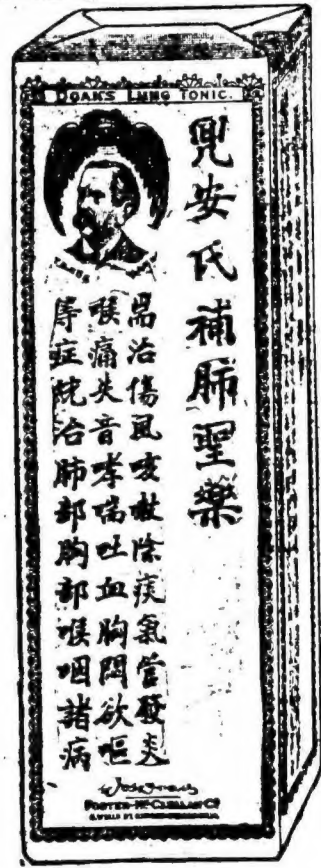 DOAN'S LUNG TONIC.
兜安氏補肺聖藥
耑治傷風咳敇除痰氣管發炎
喉痛失音哮喘吐血胸悶欲嘔
等症統治肺部胸部喉咽諸病
FOSTER-McCLELLAN Co